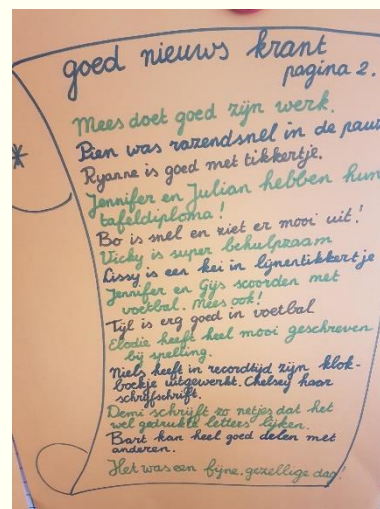 goed nieuws krant
pagina 2.
Mees doet goed zijn werk.
Pien was razendsnel in de pauz
Ryanne is goed met tikkertje.
Jennifer en Julian hebben hun
tafeldiploma!
Bo is snel en ziet er mooi uit!
Vicky is super behulpzaam
Lissy is een kei in lijnentikkertje
Jennifer en Gijs scoorden met
voetbal. Mees ook!
Tijl is erg goed in voetbal
Elodie heeft heel mooi geschreven
bij spelling.
Niels heeft in recordtijd zijn klok-
boekje uitgewerkt. Chelsey haar
schrijfschrift.
Demi schrijft zo netjes dat het
wel gedrukte letters lijken.
Bart kan heel goed delen met
anderen.
Het was een fijne, gezellige dag!